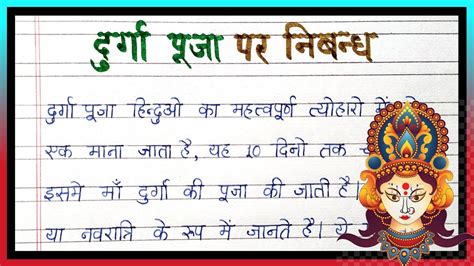 दुर्गा पूजा पर निबन्ध
दुर्गा पूजा हिन्दुओ का महत्वपूर्ण त्योहारो में
एक माना जाता है, यह 10 दिनो तक
इसमे माँ दुर्गा की पूजा की जाती है।
या नवरात्रि के रूप में जानते है।